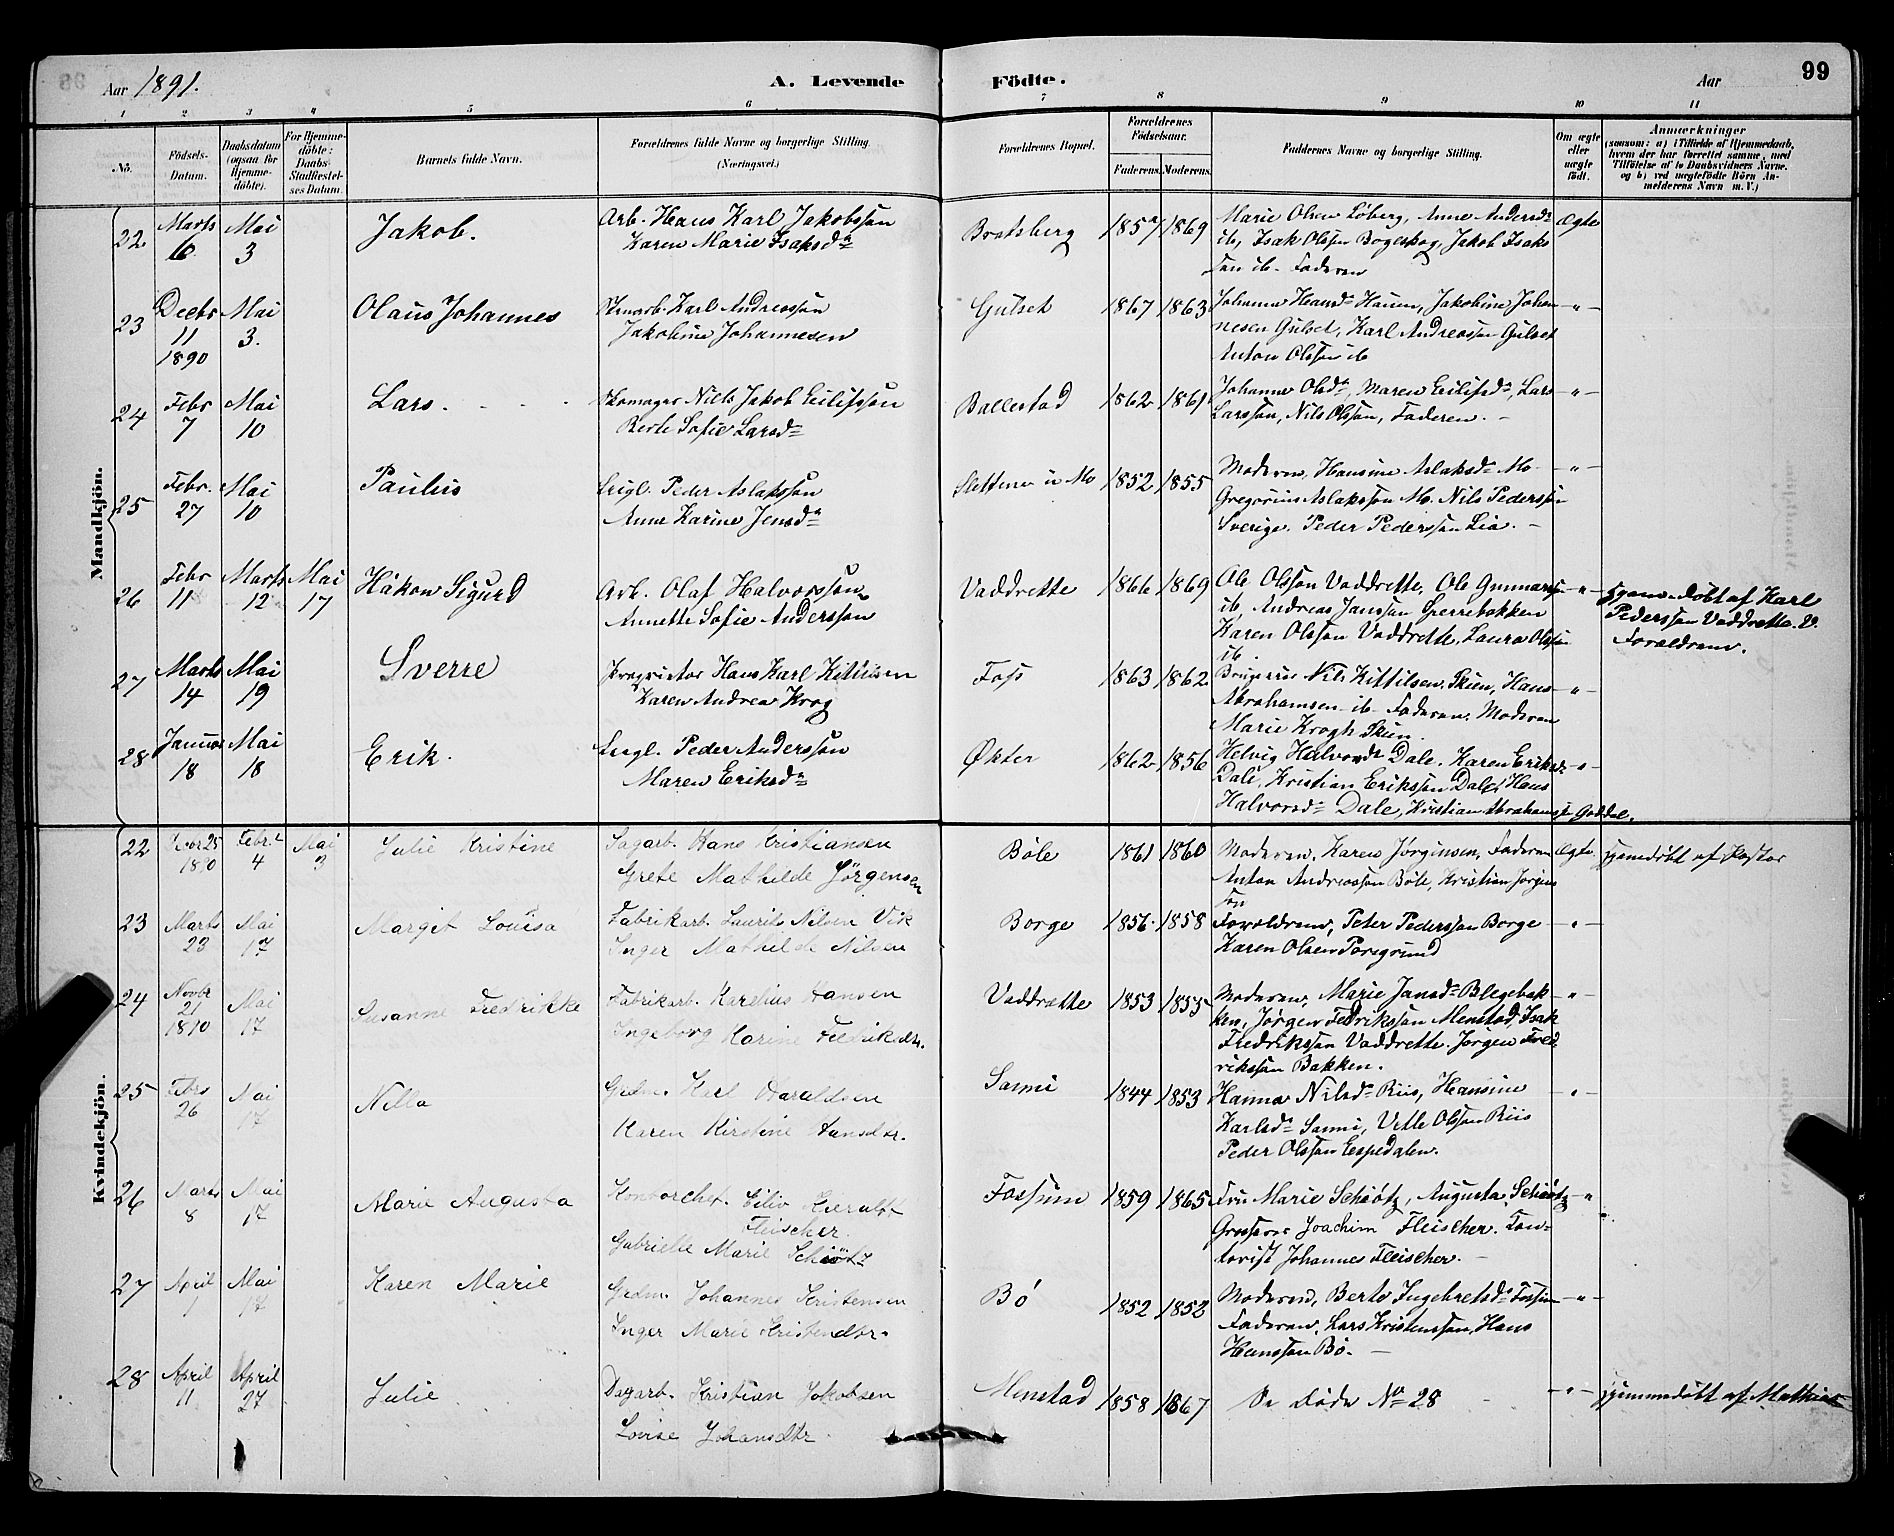 Aar 1891. A. Levende Födte. Aar 99
1 2 3 4 5 6 7 8 9 10 11
No. Födsels-Datum. Daabsdatum (ogsaa for Hjemmedöbte). For Hjemmedöbte: Daabs-Stadfæstelses Datum. Barnets fulde Navn. Forældrenes fulde Navne og borgerlige Stilling. (Næringsvei.) Forældrenes Bopæl. Forældrenes Födselsaar. Faderens. Moderens. Faddernes Navne og borgerlige Stilling. Om ægte eller uægte födt. Anmærkninger (saasom: a) i Tilfælde af Hjemmedaab, hvem der har forrettet samme, med Tilföielse af to Daabsvidners Navne. og b) ved uægtefödte Börn Anmelderens Navn m. V.)
Mandkjön.
22 Marts 16 Mai 3 Jakob. Arb. Hans Karl Jakobssøn
Karen Marie Isaksdr Bratsberg 1857 1869 Marie Olsen Löberg, Anne Andersdr Ægte
ib, Isak Olssøn Bogeskog, Jakob Isaks
søn ib. Faderen
23 Decbr 11 1890 Mai 3. Olaus Johannes Karl Andreassøn
Jakobine Johannesen Gulset 1867 1863 Johanne Hansdr Hauen, Jakobine Johan -"-
nesen Gulset, Karl Andreassøn Gulset
Anton Olssøn ib
24 Febr 7 Mai 10 Lars. Skomager Niels Jakob Eilifssøn
Berte Sofie Larsdr Ballestad 1862 1861 Johanne Olsdr, Maren Eilifsdr, Lars -"-
Larssøn, Nils Olssøn, Faderen. -
25 Febr. 27 Mai 10 Paulus Leigl. Peder Aslakssøn
Anne Karine Jensdr Slettene u Mo 1852 1855 Moderen, Hansine Aslaksdr Mo -"-
Gregorius Aslakssøn Mo. Nils Pederssøn
Sverige. Peder Pederssøn Lia. -
26 Febr 11 Marts 12 Mai 17 Håkon Sigurd Arb. Olaf Halvorssøn
Annette Sofie Anderssøn Vaddrette 1866 1869 Ole Olssøn Vaddrette, Ole Gunnarssøn -"- Hjemmedöbt af Karl
ib, Andreas Janssøn Sperrebakken Pederssøn Vaddrette. V.
Karen Olssøn Vaddrette, Laura Olssøn Forældrene.
ib.
27 Marts 14 Mai 19 Sverre Proprietær Hans Karl Kittilsen
Karen Andrea Krog Foss 1863 1862 Nils Kittilsen, Skien, Hans -"-
Abrahamsen ib. Faderen. Moderen
Marie Krogh Skien.
28 Januar 18 Mai 18 Erik. Leigl. Peder Anderssøn
Maren Eriksdr Økter 1862 1856 Helvig Halvorsdr Dale. Karen Eriksdr -"-
Dale, Kristian Erikssøn Dale, Hans
Halvorsdr Dale, Kristian Abrahamssøn
Kvindekjön.
22 Novbr 25 1890 Febr. 4 Mai 3 Julie Kristine Dagarb. Hans Kristiansen
Grete Mathilde Jörgensen Böle 1861 1860 Moderen, Karen Jørginsen, Faderen Ægte Hjemdöbt af Pastor
Anton Andreassøn Böle, Kristian Jørgins
søn
23 Marts 23 Mai 17 Margit Louisa Fabrikarb. Laurits Nilsen Vik
Inger Mathilde Nilsen Borge 1856 1858 Forældrene, Peter Pederssøn Borge -"-
Karen Olsen Porsgrund
24 Novbr 21 1890 Mai 17 Susanne Fredrikke Fabrikarb. Karelius Hansen
Ingeborg Karine Fredriksdtr. Vaddrette 1853 1855 Moderen, Marie Jansdr Blegebak -"-
ken, Jørgen Fedrikssøn Menstad, Isak
Fredrikssøn Vaddrette. Jørgen Fred
rikssøn Bakken.
25 Febr 26 Mai 17 Nilla Grdm. Karl Haraldsen
Karen Kirstine Hansdtr. Sanni 1844 1853 Hanna Nilsdr Riis, Hansine -"-
Karlsdr Sanni, Vetle Olssøn Riis
Peder Olssøn Espedalen.
26 Marts 8 Mai 17 Marie Augusta Kontorchef. Eiliv Heraldt
Fleischer.
Gabrielle Marie Schiötz Fossum 1859 1865 Fru Marie Schiøtz, Augusta Schiøtz -"-
Grosserer Joachim Fleischer. Kon-
torist Johannes Fleischer. -
27 April 1 Mai 17 Karen Marie Grdm. Johannes Kristensen
Inger Marie Kristendtr. Bö 1852 1852 Moderen, Berte Ingebretsdr Fossum -"-
Faderen, Lars Kristenssøn, Hans
Hanssøn Bö. -
28 April 11 April 27 Julie Dagarb. Kristian Jakobsen
Lovise Johansdtr. Menstad 1858 1867 Se døde No 28 -"- Hjemmedöbt af Mathias